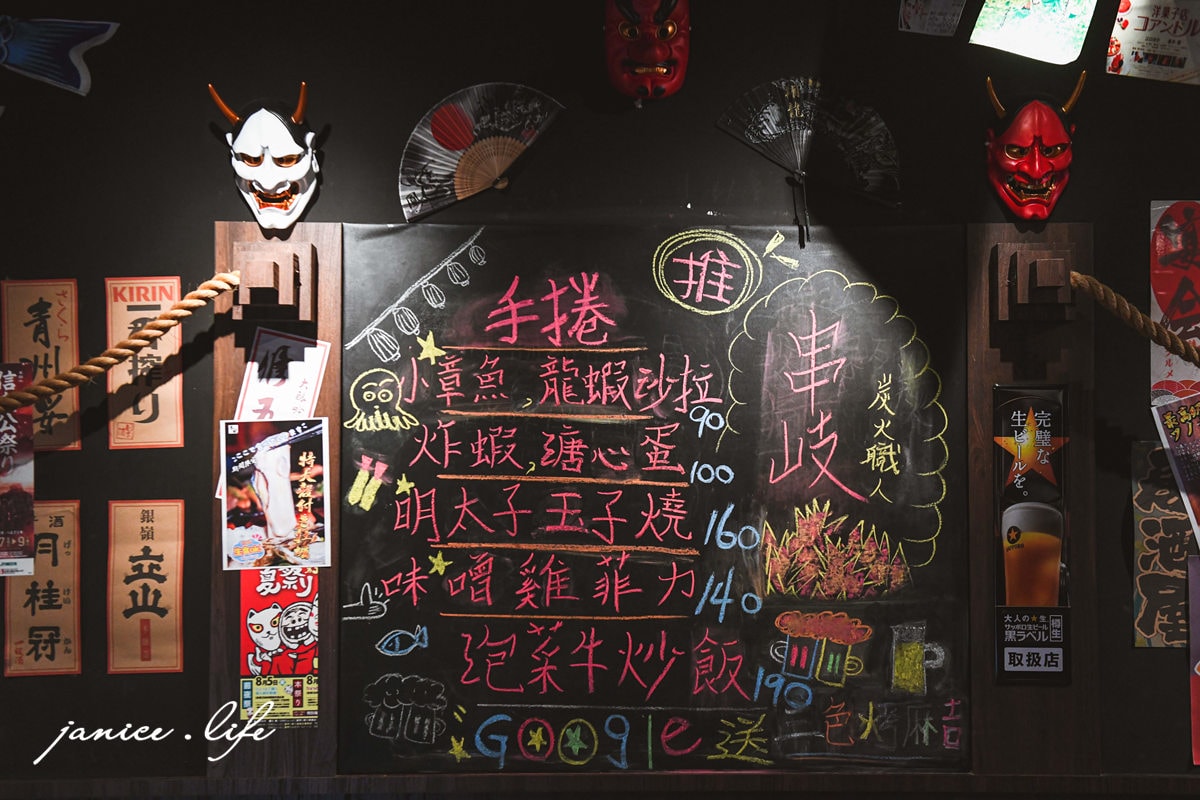 手捲
推
小章魚,龍蝦沙拉
90
炸蝦,溏心蛋
100
明太子玉子燒
160
味噌雞菲力
140
泡菜牛炒飯
190
GOOgle送
二色烤麻吉
串歧
炭火職人
さくら
青州
KIRIN
一番搾り
月桂冠
げっ
けい
かん
銀嶺
立山
夏祭り
8月5日
完璧な
生ビールを。
大人の★生
サッポロ生ビール
黒ラベル
樽生
取扱店
洋菓子店
コアンドル
居酒屋
janice.life